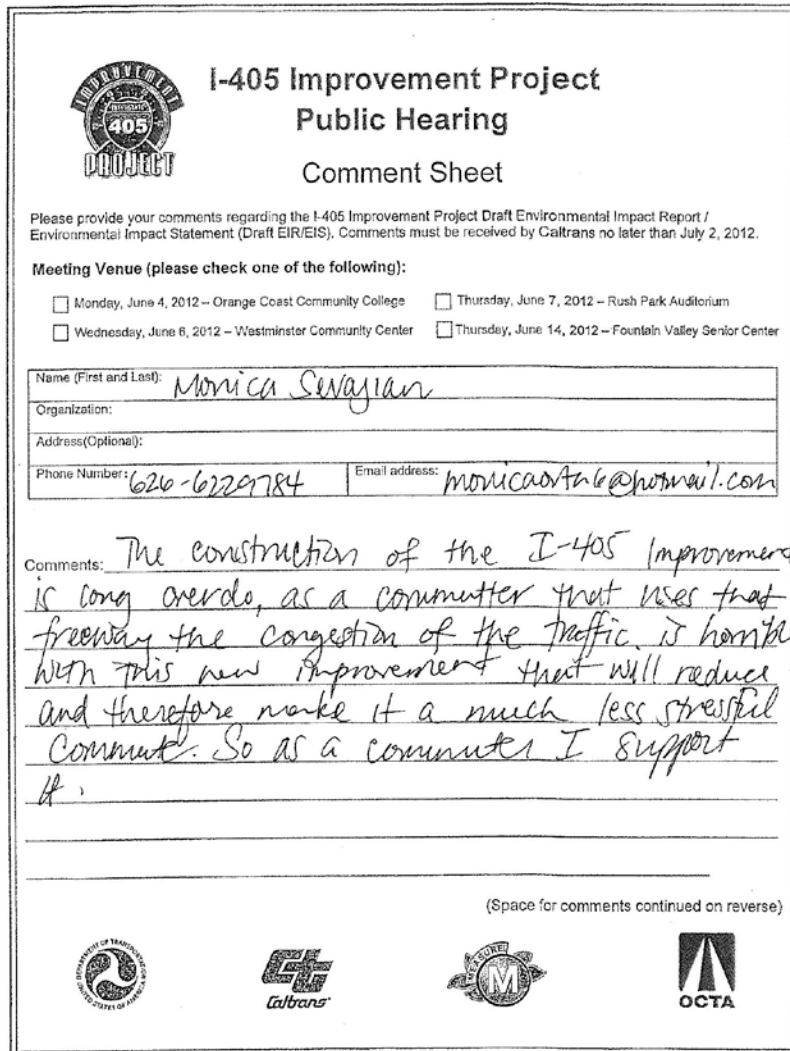 IMPROVEMENT
INTERSTATE
405
PROJECT
I-405 Improvement Project
Public Hearing
Comment Sheet
Please provide your comments regarding the I-405 Improvement Project Draft Environmental Impact Report /
Environmental Impact Statement (Draft EIR/EIS). Comments must be received by Caltrans no later than July 2, 2012.
Meeting Venue (please check one of the following):
Monday, June 4, 2012 – Orange Coast Community College
Thursday, June 7, 2012 – Rush Park Auditorium
Wednesday, June 6, 2012 – Westminster Community Center
Thursday, June 14, 2012 – Fountain Valley Senior Center
Name (First and Last): Monica Sevajian
Organization:
Address(Optional):
Phone Number: 626-6229784 Email address: @hotmail.com
Comments: The construction of the I-405 Improvement
is long overdo, as a commutter that uses that
freeway the congestion of the traffic. is horrible
with this new improvement that will reduce
and therefore make it a much less stressful
commute. So as a commuter I support
it.
(Space for comments continued on reverse)
DEPARTMENT OF TRANSPORTATION
UNITED STATES OF AMERICA
Caltrans
MEASURE
M
OCTA